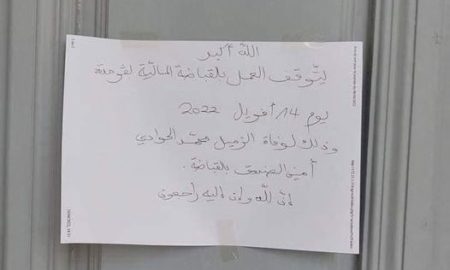 الله أكبر
يتوقف العمل بالقباضة المالية لقوحدة
يوم 14 أفريل 2022
وذلك لوفاة الزميل محمد الحوادي
أمين الصندوق بالقباضة.
إنّا لله وإنا إليه راجعون